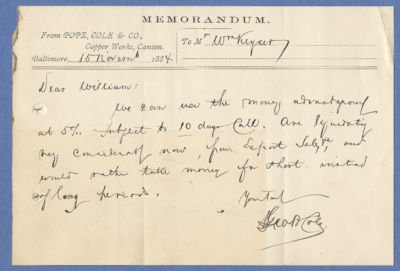 MEMORANDUM.
From POPE, COLE & CO.,
Copper Works, Canton.
Baltimore, 15 Novemb 1884.
To Mr Wm Keyser
Dear William:
We can use the money
at 5% subject to 10 days Call. Are liquidating
very considerably now, from Export Sales and
would rather take money for short instead
of long periods.
Yours truly
Geo B Cole